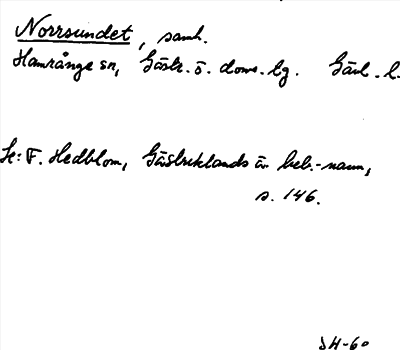 Norrsundet, samh.
Hamrånge sn, Gästr. ö. doms. tg. Gävl. l.
Se: F. Hedblom, Gästriklands äv. beb.-namn,
s. 146.
JH-60